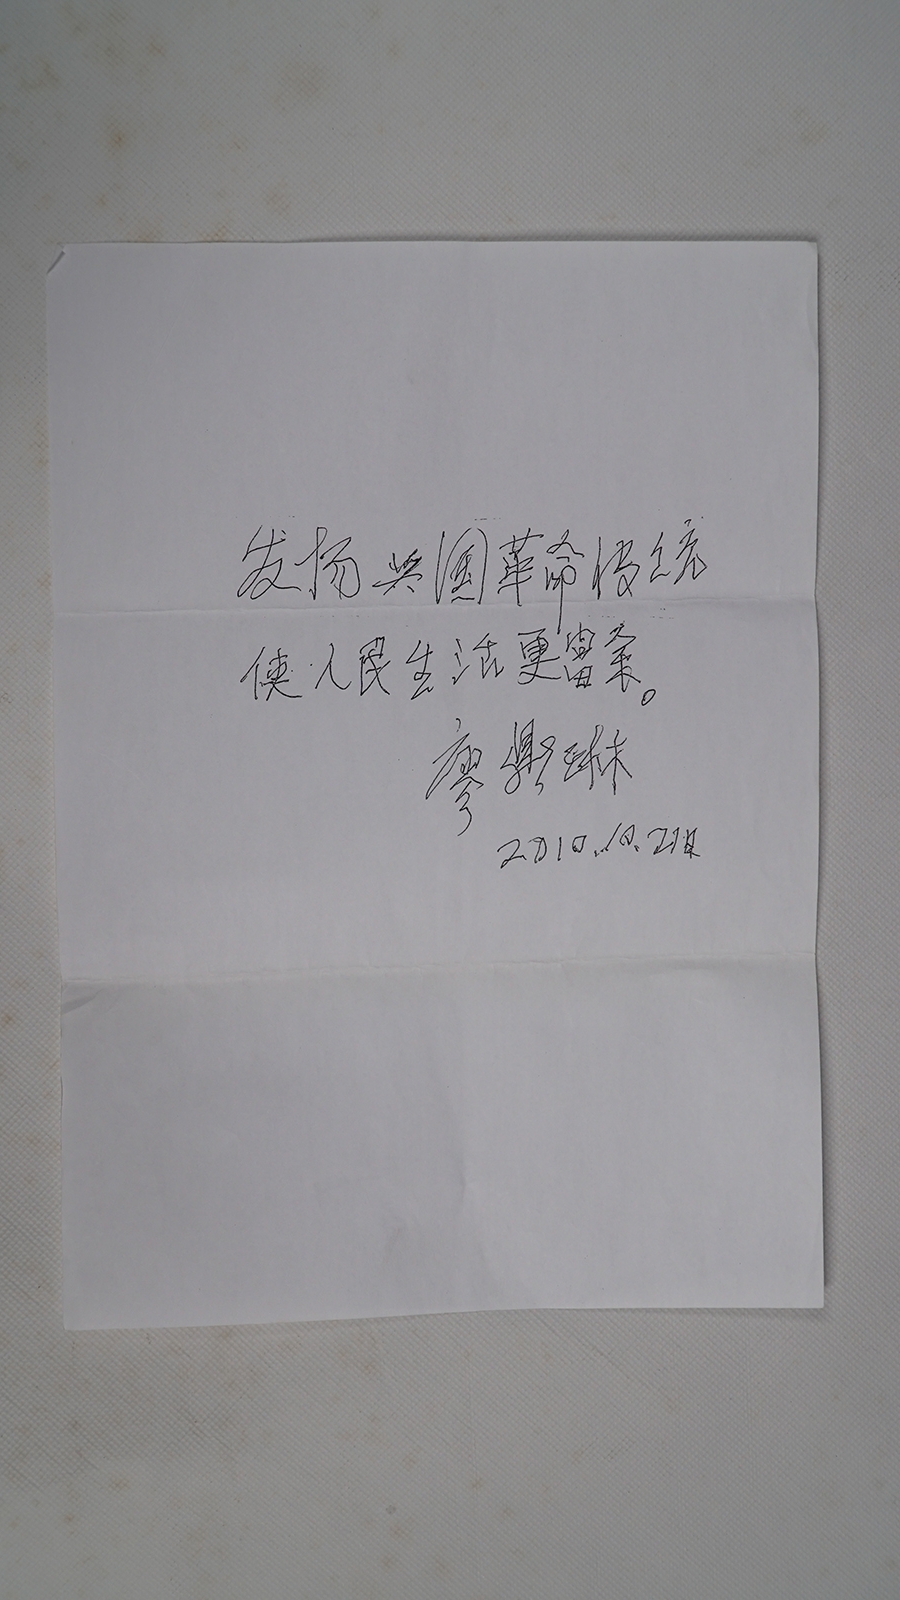 发扬兴国革命传统
使人民生活更富余。
廖鼎琳
2010.10.21日